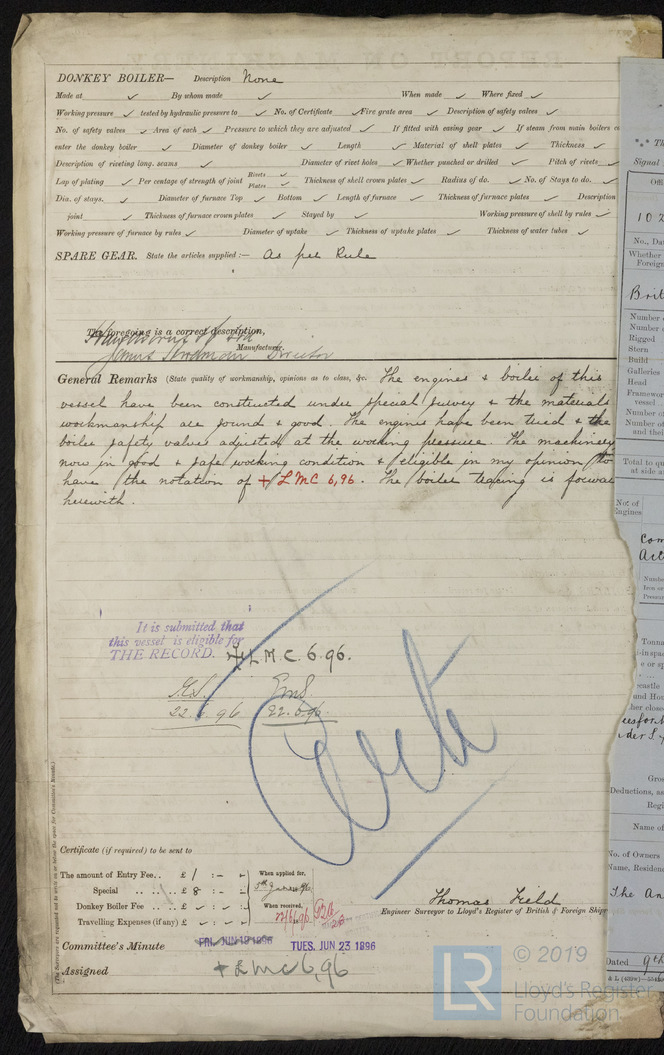 DONKEY BOILER— Description None
Made at ✓ By whom made ✓ When made ✓ Where fixed ✓
Working pressure ✓ tested by hydraulic pressure to ✓ No. of Certificate ✓ Fire grate area ✓ Description of safety valves ✓
No. of safety valves ✓ Area of each ✓ Pressure to which they are adjusted ✓ If fitted with easing gear ✓ If steam from main boilers c
enter the donkey boiler ✓ Diameter of donkey boiler ✓ Length ✓ Material of shell plates ✓ Thickness ✓
Description of riveting long. seams ✓ Diameter of rivet holes ✓ Whether punched or drilled ✓ Pitch of rivets ✓
Lap of plating ✓ Per centage of strength of joint Rivets ✓ Plates ✓ Thickness of shell crown plates ✓ Radius of do. ✓ No. of Stays to do. ✓
Dia. of stays. ✓ Diameter of furnace Top ✓ Bottom ✓ Length of furnace ✓ Thickness of furnace plates ✓ Description
joint ✓ Thickness of furnace crown plates ✓ Stayed by ✓ Working pressure of shell by rules ✓
Working pressure of furnace by rules ✓ Diameter of uptake ✓ Thickness of uptake plates ✓ Thickness of water tubes ✓
SPARE GEAR. State the articles supplied:— As per Rule
The foregoing is a correct description,
Manufacturer.
Director
General Remarks (State quality of workmanship, opinions as to class, &c. The engines & boiler of this
vessel have been constructed under special survey & the materials
workmanship are sound & good. The engines have been tried & the
boiler safety valves adjusted at the working pressure. The machinery
now in good & safe working condition & eligible in my opinion to
have the notation of + LMC 6,96. The boiler tracing is forwar
herewith.
It is submitted that
this vessel is eligible for
THE RECORD. + L.M.C. 6.96.
22.6.96 22.6.96
Certificate (if required) to be sent to
The amount of Entry Fee.. £ 1 : - : - When applied for,
Special .. .. .. £ 8 : - : -
Donkey Boiler Fee .. .. £ ✓ : ✓ : ✓ When received,
Travelling Expenses (if any) £ ✓ : ✓ : ✓
Thomas Field
Engineer Surveyor to Lloyd's Register of British & Foreign Shipp
Committee's Minute FRI. JUN 19 1896 TUES. JUN 23 1896
Assigned + LMC 6,96
© 2019
LR Lloyd's Register
Foundation
Signal
No., Da
Whether
Foreign
Brit
Number
Number
Rigged
Stern
Build
Galleries
Head
Framewor
vessel
Number of
Number of
and thei
Total to qu
at side a
No. of
Engines
Tonna
Deductions, as
Regi
Name of
No. of Owners
Name, Residen
The An
Dated 9th